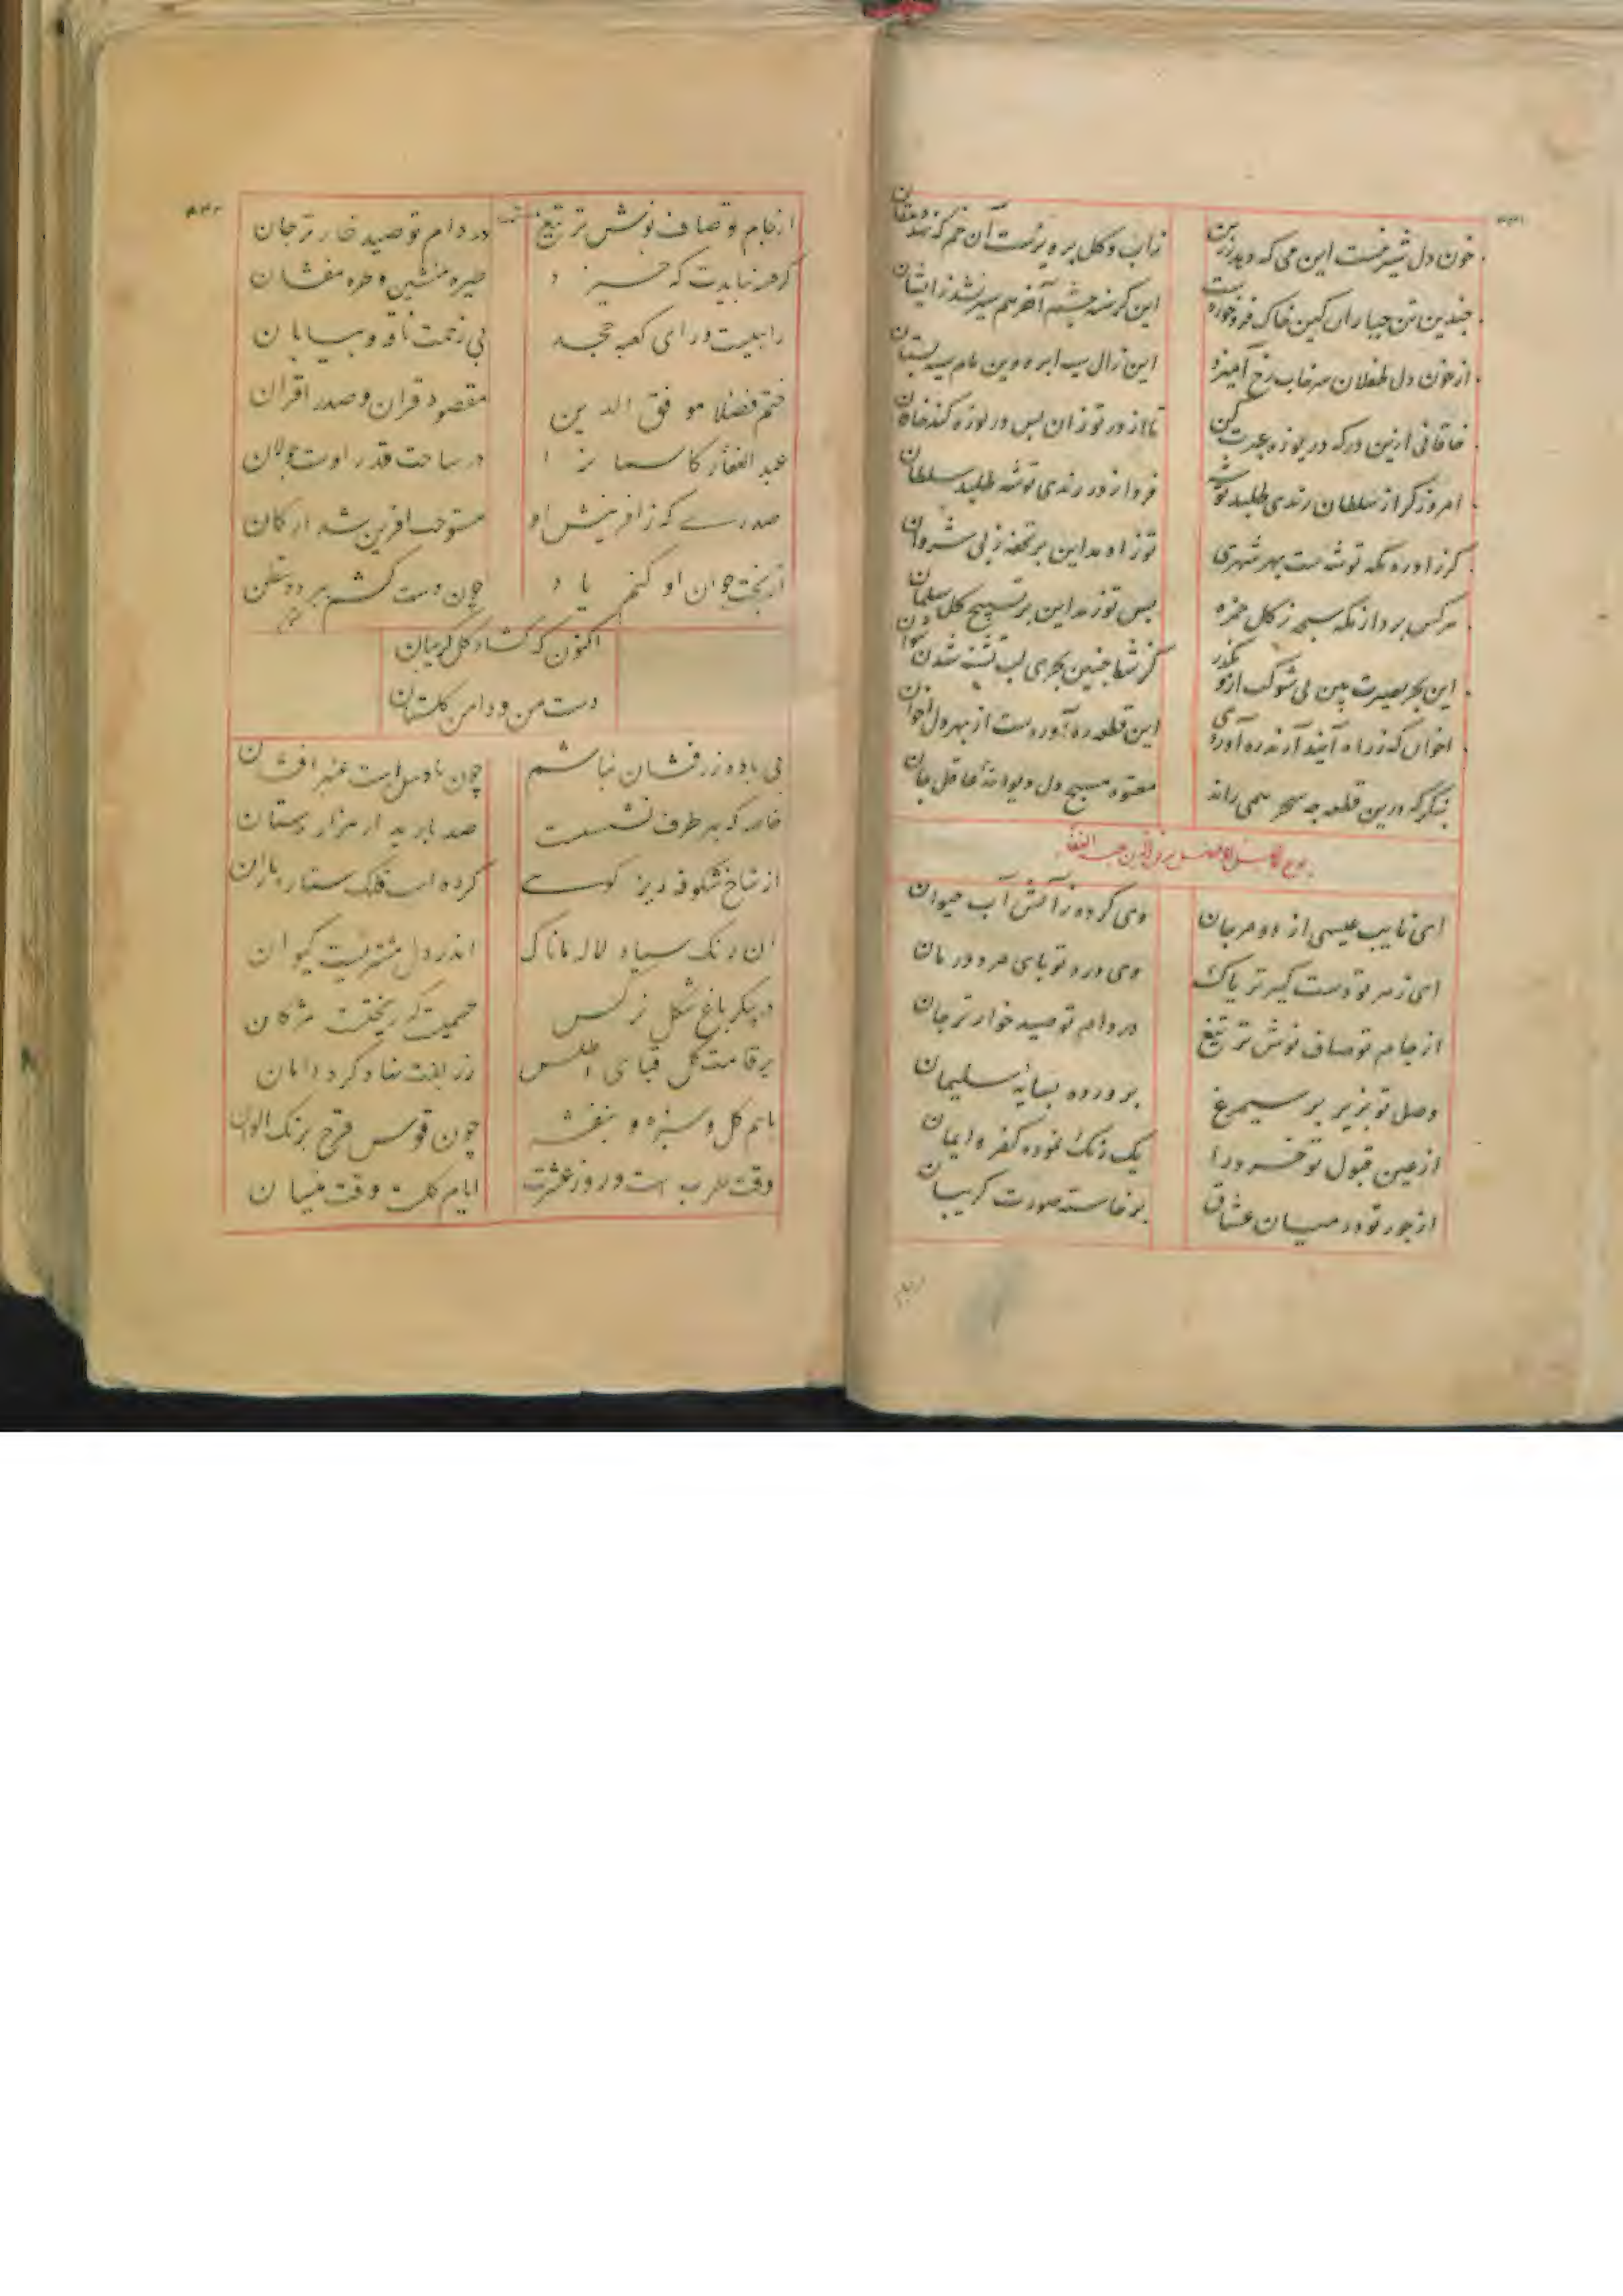 خون دل شیرینست این می که دهد رزبن
زآب و گل پرویزست آن خم که نهد دهقان
چندین تن جباران کین خاک فرو خورده است
این گرسنه چشم آخر هم سیر نشد زایشان
از خون دل طفلان سرخاب رخ آمیزد
این زال سپید ابرو وین مام سیه پستان
خاقانی ازین درگه دریوزه عبرت کن
تا از در تو زان پس دریوزه کند خاقان
امروز گر از سلطان رندی طلبد توشه
فردا ز در رندی توشه طلبد سلطان
گر زاد ره مکه توشه است بهر شهری
تو زاد مداین بر تحفه ز پی شروان
هرکس برد از مکه سبحه ز گل حمزه
پس تو ز مداین بر تسبیح گل سلمان
این بحر بصیرت بین بی شربت ازو مگذر
کز شط چنین بحری لب تشنه شدن نتوان
اخوان که ز راه آیند آرند ره آوردی
این قطعه ره آوردست از بهر دل اخوان
بنگر که درین قطعه چه سحر همی راند
معتوه مسیح دل دیوانه عاقل جان
ای نایب عیسی از دو مرجان
وی کرده ز آتش آب حیوان
ای زهر تو دست گیر تریاک
وی درد تو پای مرد درمان
از جام تو صاف نوش تر تیغ
در دام تو صید خوارتر جان
وصل تو بزیر پر سیمرغ
پرورده بسایه سلیمان
از عین قبول تو خرد را
یک رنگ نموده کفر و ایمان
از جور تو در میان عشاق
برخاسته صورت گریبان
از جام تو صاف نوش تر تیغ
در دام تو صید خارتر جان
گر همه نبایدت که خیزد
خیره منشین و طره مفشان
را هیست ورای کعبه مجد
بی زحمت ناقه و بیابان
ختم فضلا موفق الدین
مقصود قران و صدر اقران
عبد الغفار کاسمان را
در ساحت قدر اوست جولان
صدری که ز آفرینش او
مستوجب آفرین شد ارکان
از بخت جوان او کنم یاد
چون دست کشم بر دوستان
اکنون که گشاد گل گریبان
دست من و دامن گلستان
بی باده زر فشان نباشم
چون باد شدست عنبر افشان
خاصه که بهر طرف نشست
صد باربد از هزار دستان
از شاخ شکوفه ریز گویی
کرده است فلک ستاره باران
آن رنگ سیاه لاله ماناک
اندر دل مشتریست کیوان
در پیکر باغ شکل نرگس
چشمیست که ریختست مژگان
بر قامت گل قبای اطلس
زربفت نهاد گرد دامان
باهم گل و سبزه و بنفشه
چون قوس قزح برنگ الوان
وقت طرب است و روز عشرت
ایام گلست و وقت نیسان